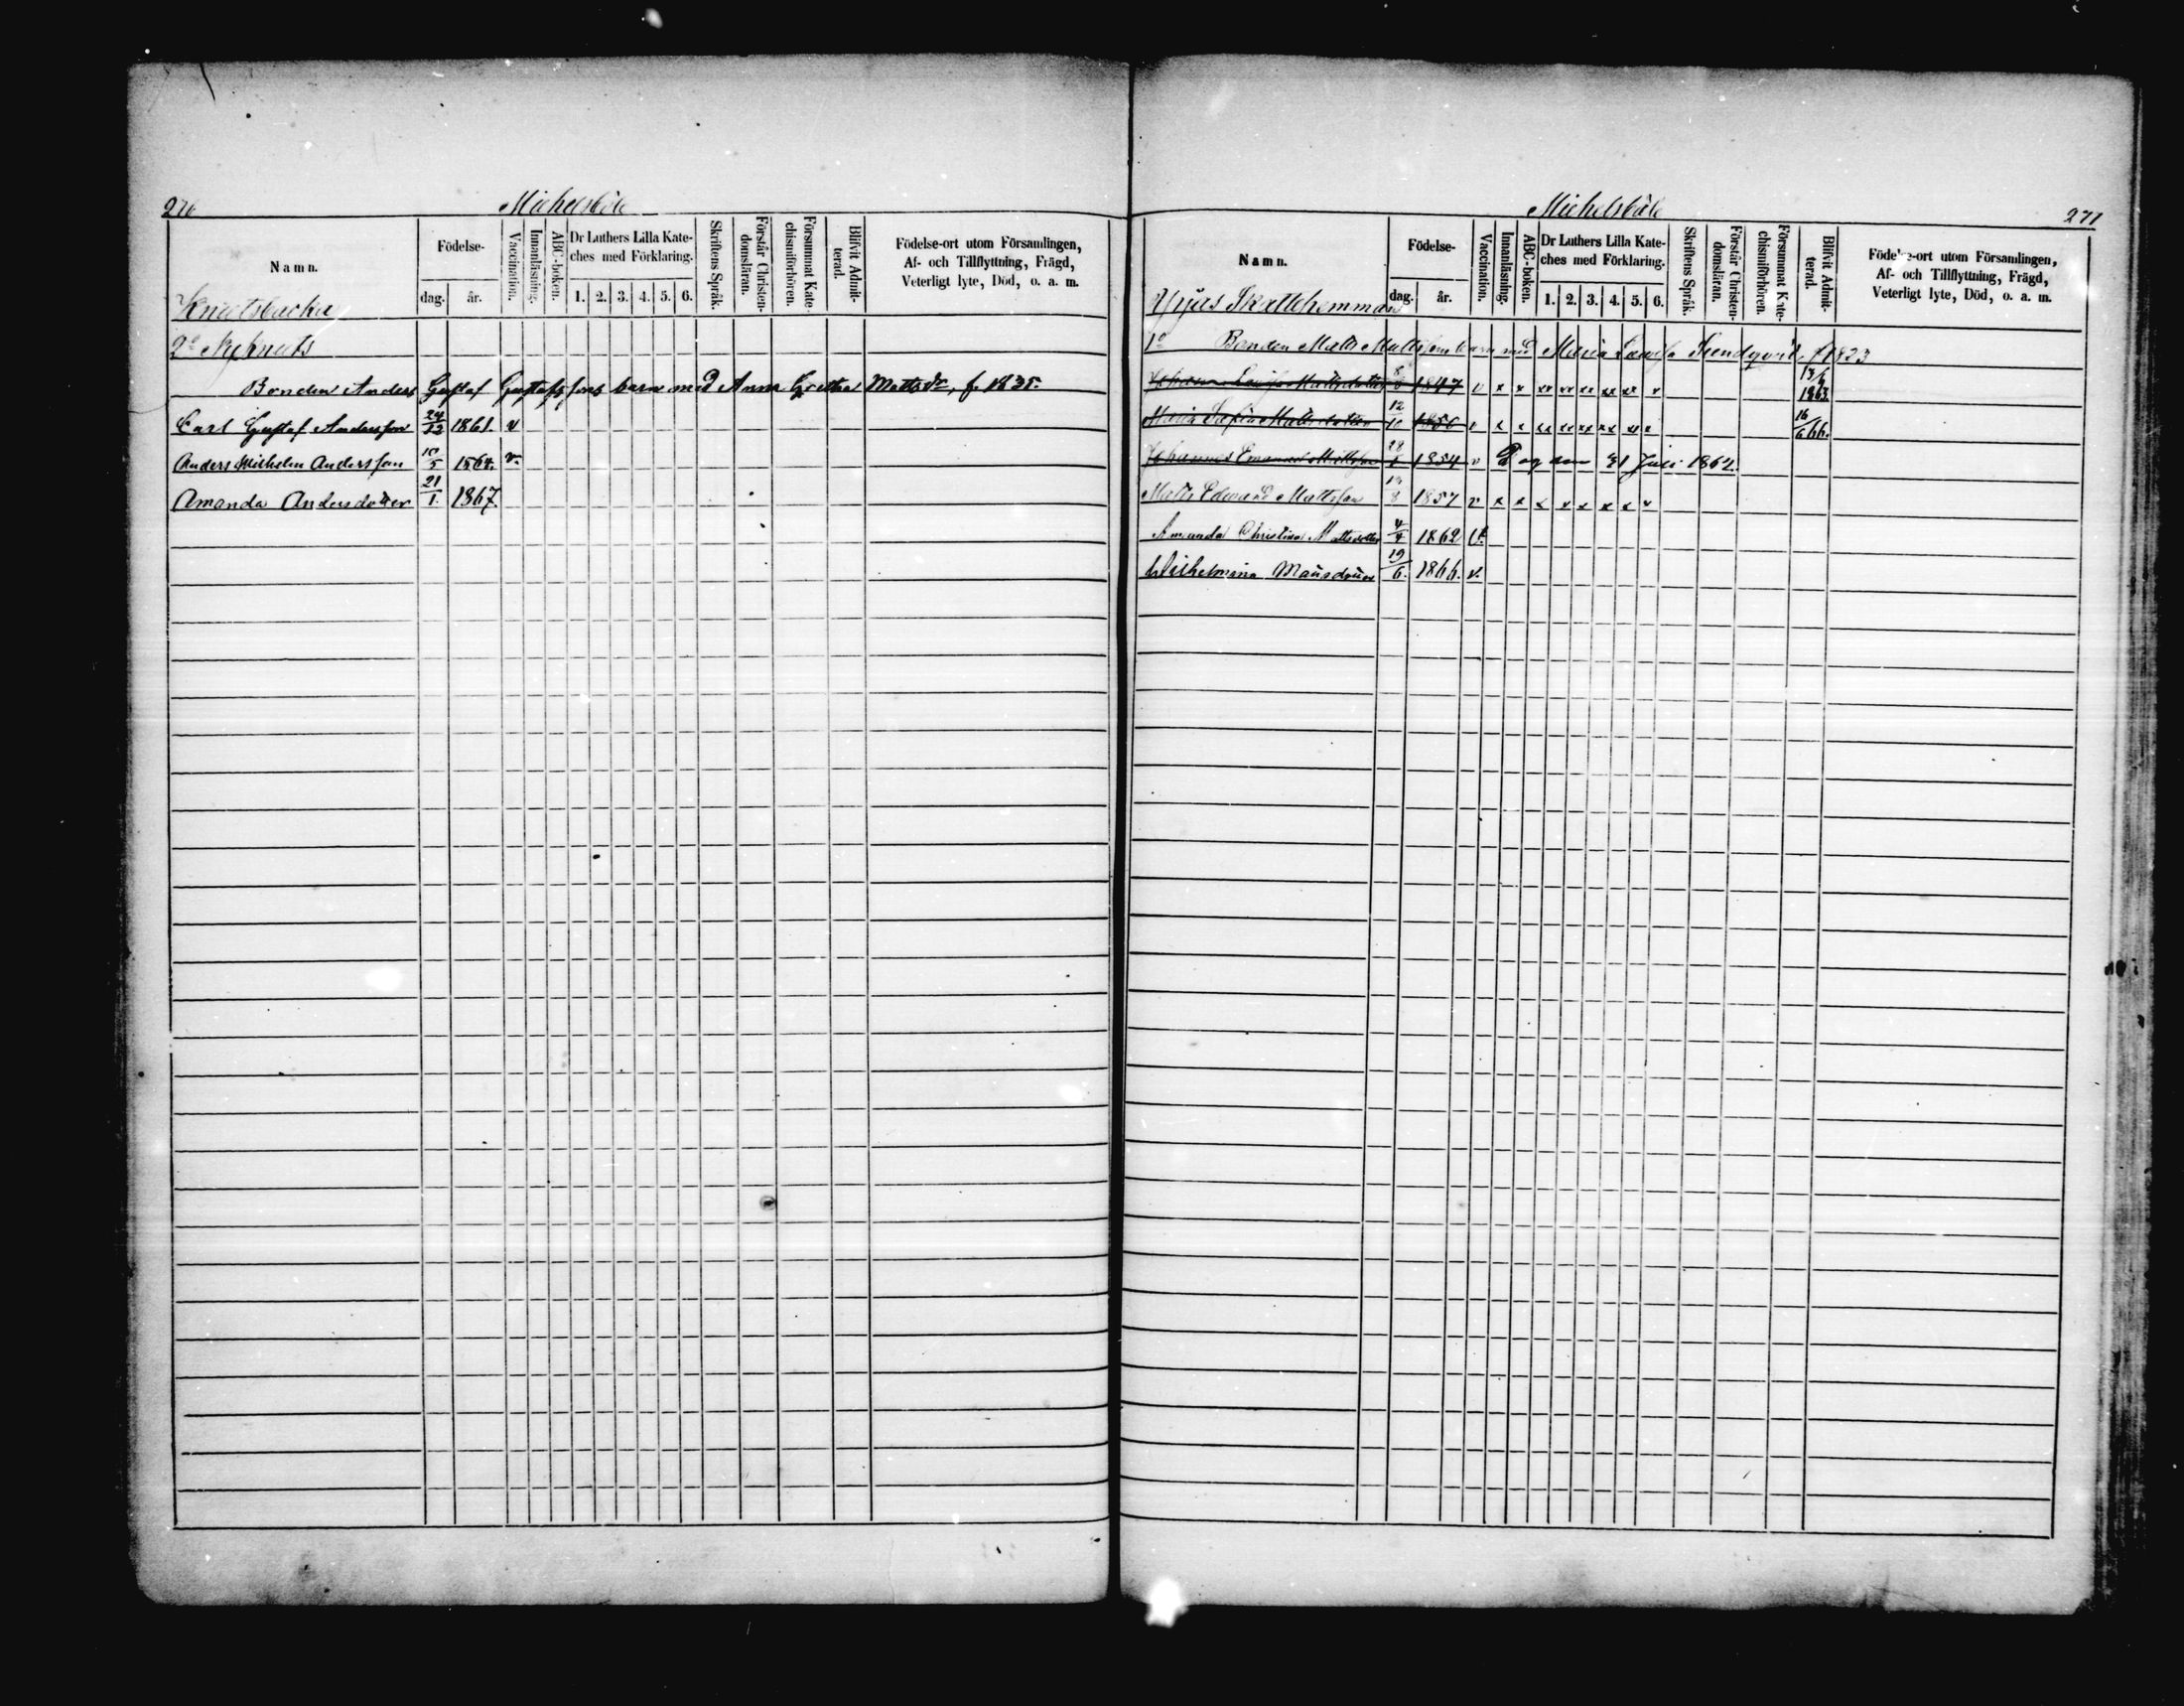 270 Michelsböle
Namn. Födelse- dag. år. Vaccination. Innanläsning. ABC-boken. Dr Luthers Lilla Kateches med Förklaring. 1. 2. 3. 4. 5. 6. Skriftens Språk. Förstår Christendomsläran. Försummat Katechismiförhören. Blifvit Admitterad. Födelse-ort utom Församlingen, Af- och Tillflyttning, Frägd, Veterligt lyte, Död, o. a. m.
Knutsbacka
2o Nyknuts
Bonden Anders Gustaf Gustafssons barn med Anna Gretha Mattsdr, f. 1835.
Carl Gustaf Andersson 24/12 1861. v
Anders Wilhelm Andersson 10/5 1864. v.
Amanda Andersdotter 21/1. 1867.
Michelsböle 271
Namn. Födelse- dag. år. Vaccination. Innanläsning. ABC-boken. Dr Luthers Lilla Kateches med Förklaring. 1. 2. 3. 4. 5. 6. Skriftens Språk. Förstår Christendomsläran. Försummat Katechismiförhören. Blifvit Admitterad. Födelse-ort utom Församlingen, Af- och Tillflyttning, Frägd, Veterligt lyte, Död, o. a. m.
Skattehemman
1o Bonden Matts Mattssons barn med Maria Lovisa Sundqvist, f 1823
Johanna Lovisa Mattsdotter 1847 v x x xx xx xx xx xx v 1863.
Maria Sofia Mattsdotter 12/10 1850 v x x xx xx xx xx xx x 16/6 66.
Johannes Emanuel Mattsson 1854 v Dog den 31 Juli 1862.
Matts Edvard Mattsson 1857 v x x x x x x x v
Amanda Christina Mattsdotter 1862 v.
Wilhelmina Mattsdotter 19/6. 1866. v.